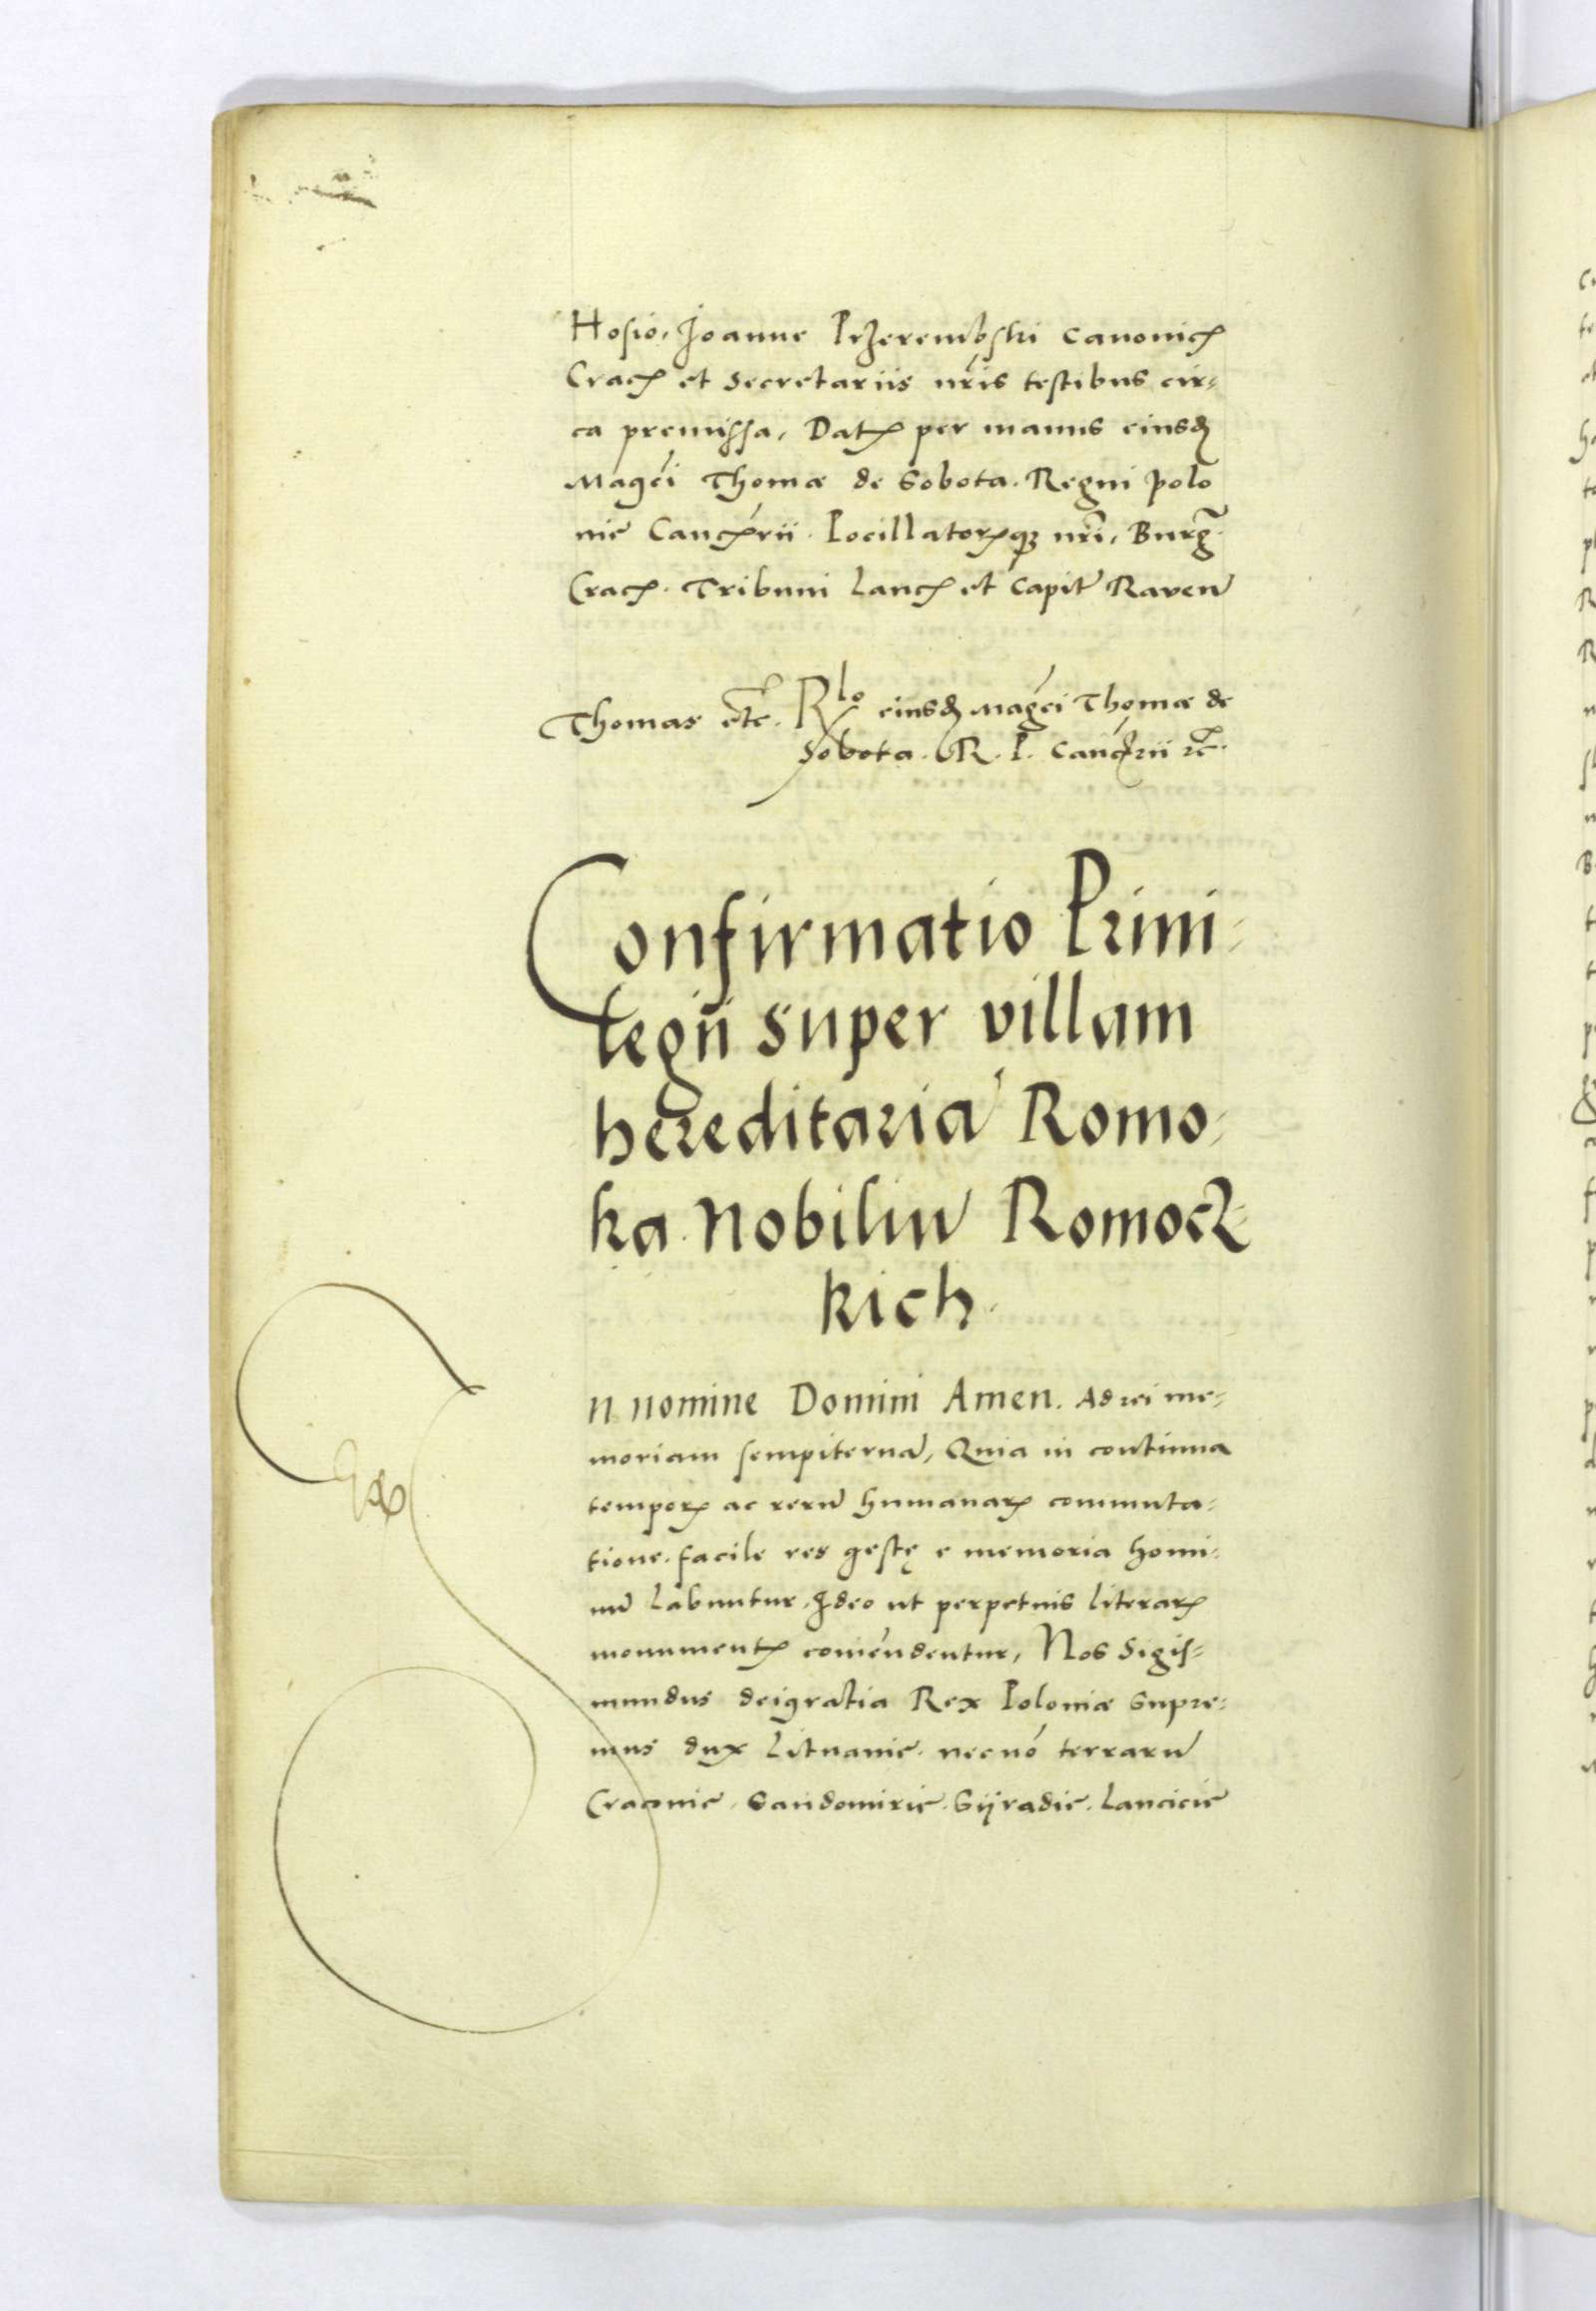 Hosio, Joanne Przerembski Canonicꝭ
Cracꝭ et Secretariis nr̃is testibus cir⸗
ca premissa, Datꝭ per manus eiusdꝫ
Magc̃i Thomæ de Sobota. Regni Polo
nie Cancꝭrii. Pocillatorꝭqꝫ nr̃i, Burg̃.
Cracꝭ. Tribuni Lancꝭ et Capit̃ Raven̄
Thomas etc̃. Rlo eiusdꝫ Magc̃i Thomæ de
Sobota. R. P. Cancꝭrii ꝛc̃.
Confirmatio Privi⸗
legii super villam
hereditariā Romo⸗
ka nobiliū Romocz⸗
kich.
n nomine Domini Amen. Ad rei me⸗
moriam sempiternā, Quia in continua
temporꝝ ac rerū humanarꝝ commuta⸗
tione, facile res gestę e memoria homi⸗
nū labuntur, Ideo ut perpetuis literarꝝ
monumentꝭ com̄endentur, Nos Sigis⸗
mundus deigratia Rex Poloniæ Supre⸗
mus dux Lituanie. necnō terrarū
Cracovie, Sandomirie. Syradie. Lancicie